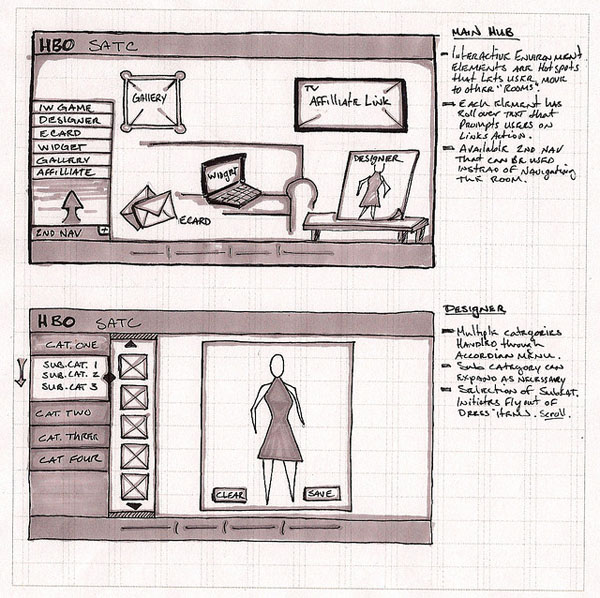 HBO SATC
GALLERY
TV
AFFILLIATE LINK
IW GAME
DESIGNER
ECARD
WIDGET
GALLERY
AFFILLIATE
2ND NAV
+
WIDGET
ECARD
DESIGNER
MAIN HUB
- INTERACTIVE ENVIRONMENT
ELEMENTS ARE HOTSPOTS
THAT LETS USER MOVE
TO OTHER "ROOMS".
- EACH ELEMENT HAS
ROLLOVER TEXT THAT
PROMPTS USERS ON
LINKS ACTION.
- AVAILABLE 2ND NAV
THAT CAN BE USED
INSTEAD OF NAVIGATING
THE ROOM.
HBO SATC
CAT. ONE
SUB.CAT. 1
SUB.CAT. 2
SUB.CAT 3
CAT. TWO
CAT. THREE
CAT FOUR
CLEAR
SAVE
DESIGNER
- Multiple CATEGORIES
HANDLED through
ACCORDIAN MENU.
- Sub CATEGORY CAN
EXPAND AS NECESSARY
- SELECTION OF SUBCAT.
INITIATES FLYOUT OF
DRESS ITEMS. Scroll.